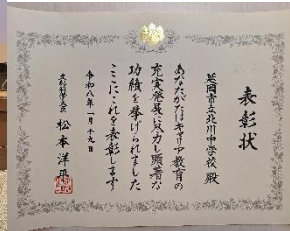 表彰状
延岡市立北川中学校 殿
あなたがたはキャリア教育の
充実発展に尽力し顕著な
功績を挙げられました
ここにこれを表彰します
令和八年一月十九日
文部科学大臣 松本洋平